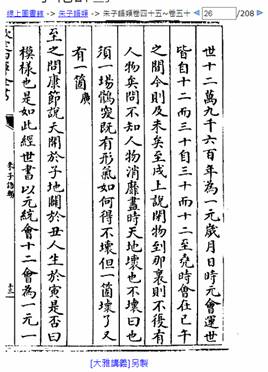 線上圖書館 -> 朱子語類 -> 朱子語類卷四十五~卷五十 26 /208
世十二萬九千六百年為一元歲月日時元會運世
皆自十二而三十自三十而十二至堯時會在巳午
之間今則及未矣至戌上說閉物到那裏則不復有
人物矣問不知人物消靡盡時天地壞也不壞曰也
須一場鶻突既有形氣如何得不壞但一箇壞了又
有一箇廣
至之問康節說天開於子地闢於丑人生於寅是否曰
模樣也是如此經世書以元統會十二會為一元
朱子語類
[大雅講義]另製